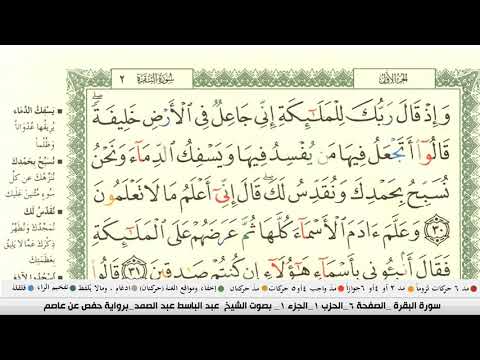 الجزء الأول
سورة البقرة ٢
وَإِذْ قَالَ رَبُّكَ لِلْمَلَٰٓئِكَةِ إِنِّي جَاعِلٌ فِي ٱلْأَرْضِ خَلِيفَةً ۖ
قَالُوٓا۟ أَتَجْعَلُ فِيهَا مَن يُفْسِدُ فِيهَا وَيَسْفِكُ ٱلدِّمَآءَ وَنَحْنُ
نُسَبِّحُ بِحَمْدِكَ وَنُقَدِّسُ لَكَ ۖ قَالَ إِنِّيٓ أَعْلَمُ مَا لَا تَعْلَمُونَ
٣٠ وَعَلَّمَ ءَادَمَ ٱلْأَسْمَآءَ كُلَّهَا ثُمَّ عَرَضَهُمْ عَلَى ٱلْمَلَٰٓئِكَةِ
فَقَالَ أَنۢبِـُٔونِي بِأَسْمَآءِ هَٰٓؤُلَآءِ إِن كُنتُمْ صَٰدِقِينَ ٣١ قَالُوا۟
يَسْفِكُ الدِّمَاءَ
يُرِيقُهَا عُدْوَاناً
وَظُلْماً
نُسَبِّحُ بِحَمْدِكَ
نُنَزِّهُكَ عَنْ كُلِّ
سُوءٍ مُثْنِينَ عَلَيْكَ
نُقَدِّسُ لَكَ
نُمَجِّدُكَ وَنُطَهِّرُ
ذِكْرَكَ عَمَّا لا يَلِيقُ
بِعَظَمَتِكَ
مد ٦ حركات لزوماً مد ٢ أو ٤ أو ٦ جوازاً مد واجب ٤ أو ٥ حركات مد حركتان إخفاء، ومواقع الغنة (حركتان) ادغام، ومالا يلفظ تفخيم الراء قلقلة
سورة البقرة _الصفحة ٦_الحزب ١_الجزء ١_ بصوت الشيخ عبد الباسط عبد الصمد_برواية حفص عن عاصم